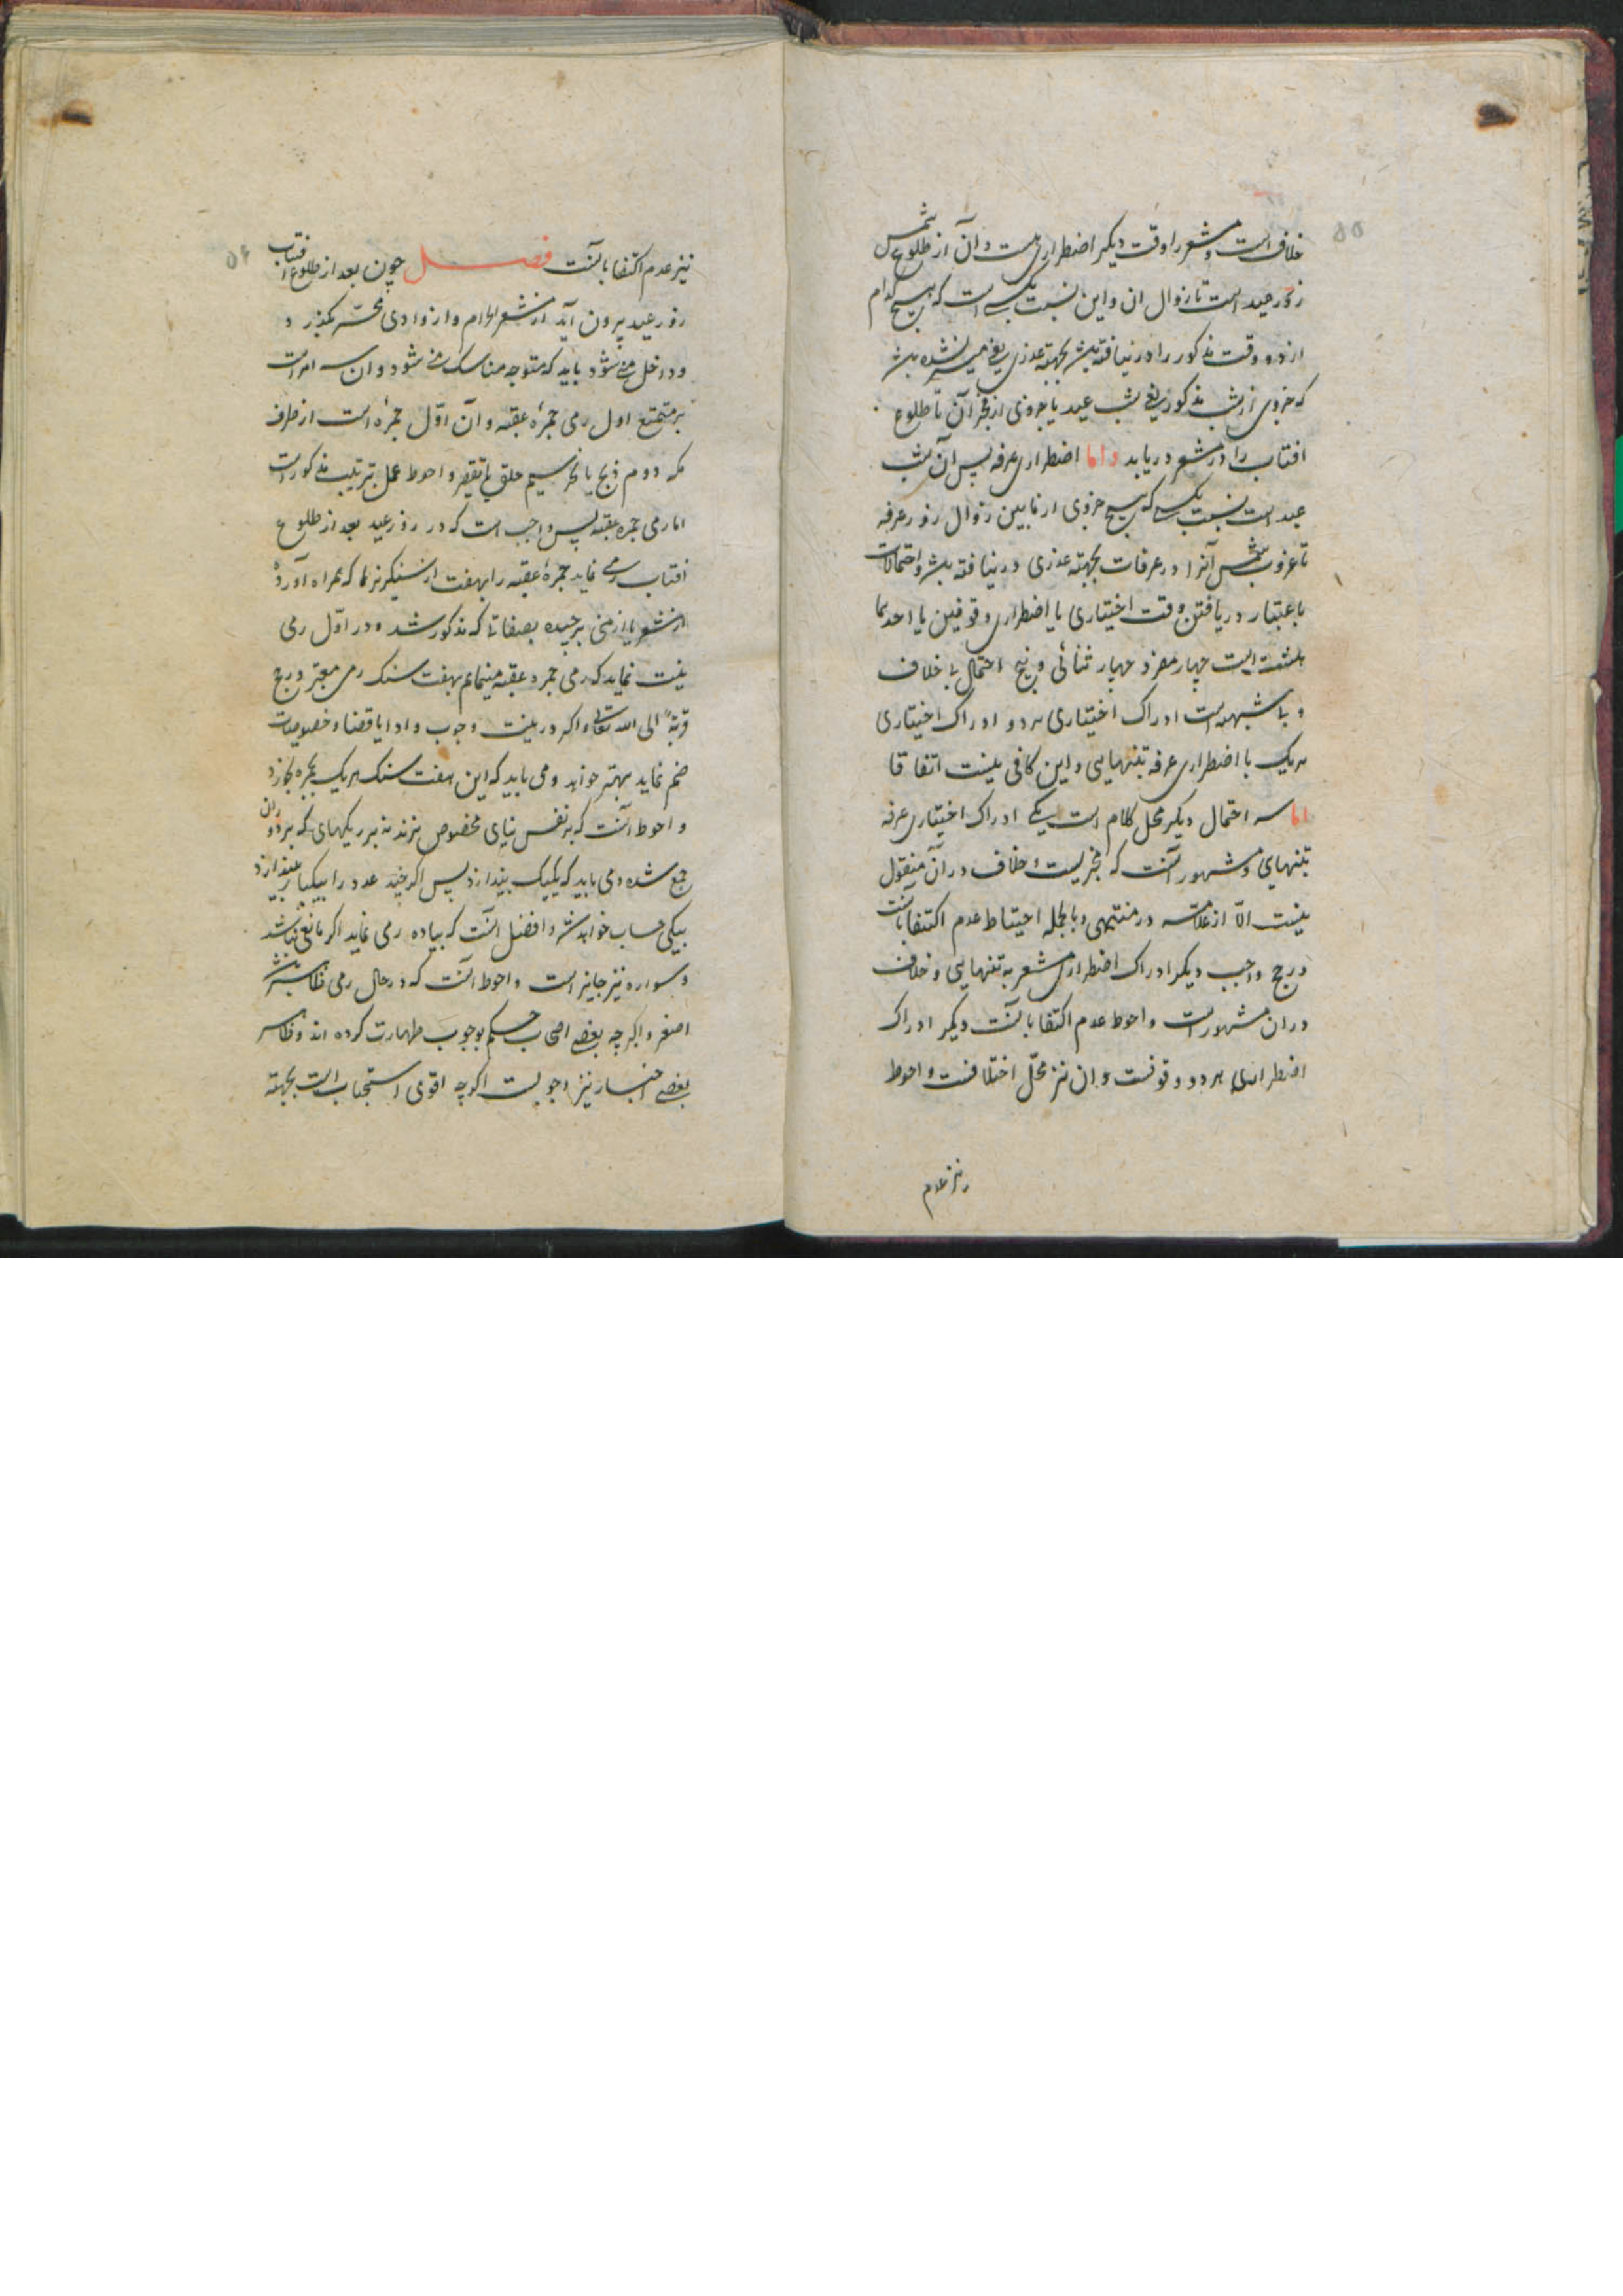 ۵۵
خلاف است و مشعر را وقت دیگر اضطراری هست و آن از طلوع شمس
روز عید است تا زوال ان و این نسبت بکسی است که هیچ کدام
از دو وقت مذکور را در نیافته باشد بجهته عذری یعنی میسر نشده باشد
که جزوی از شب مذکور یعنی شب عید یا جزوی از فجر آن تا طلوع
افتاب را در مشعر دریابد واما اضطراری عرفه پس آن شب
عید است نسبت بکسی که هیچ جزوی از مابین زوال روز عرفه
تا غروب شمس آنرا در عرفات بجهته عذری در نیافته باشد و احتمالات
باعتبار دریافتن وقت اختیاری یا اضطراری وقوفین یا احدهما
هشت است چهار مفرد و چهار ثنائی و پنج احتمال بی خلاف
و بی شبهه است ادراک اختیاری هر دو و ادراک اختیاری
هر یک با اضطراری عرفه بتنهایی و این کافی نیست اتفاقا
اما سه احتمال دیگر محل کلام است یکی ادراک اختیاری عرفه
بتنهایی و مشهور آنست که مجزیست و خلاف در آن منقول
نیست الّا از علامه در منتهی و بالجمله احتیاط عدم اکتفا بآنست
در حج واجب دیگر ادراک اضطراری مشعر به تنهایی و خلاف
در ان مشهور است و احوط عدم اکتفا بآنست دیگر ادراک
اضطراری هر دو وقوفست و ان نیز محلّ اختلافست و احوط
نیز عدم
۵۶
نیز عدم اکتفا بآنست فصل چون بعد از طلوع افتاب
روز عید بیرون آید از مشعر الحرام و از وادی محسّر بگذرد و
و داخل منی شود باید که متوجه مناسک منی شود و ان سه امر است
بر متمتع اول رمی جمرهٔ عقبه و آن اوّل جمره است از طرف
مکه دوم ذبح یا نحر سیم حلق یا تقصیر و احوط عمل بترتیب مذکور است
اما رمی جمره عقبه پس واجب است که در روز عید بعد از طلوع
افتاب رمی نماید جمرهٔ عقبه را بهفت از سنگریزها که همراه آورده
از مشعر یا از منی برچیده بصفاتی که مذکور شد و در اوّل رمی
نیت نماید که رمی جمره عقبه مینمایم بهفت سنک رمی معتبر در حج
قربةً الی الله تعالی و اگر در نیت وجوب و ادا یا قضا و خصوصیات
ضم نماید بهتر خواهد و می باید که این هفت سنک هر یک بجمره بخورد
و احوط آنست که بر نفس بنای مخصوص بزند نه بر ریکهای که بر دوران
جمع شده و می باید که یکیک بیندازد پس اگر چند عدد را بیکبار بیندازد
بیکی حساب خواهد شد و افضل آنست که پیاده رمی نماید اگر مانعی نباشد
و سواره نیز جایز است و احوط آنست که در حال رمی باشد
اصغر و اگر چه بعضی اصحاب حکم بوجوب طهارت کرده اند و ظاهر
بعضی اخبار نیز وجوبست اگرچه اقوی استحباب است بجهته